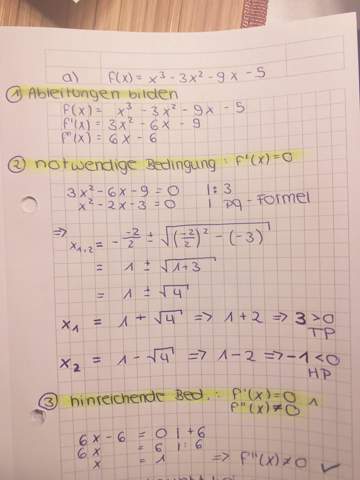 a) f(x) = x³ - 3x² - 9x - 5
① Ableitungen bilden
f(x) = x³ - 3x² - 9x - 5
f'(x) = 3x² - 6x - 9
f''(x) = 6x - 6
② notwendige Bedingung: f'(x)=0
3x² - 6x - 9 = 0 | : 3
x² - 2x - 3 = 0 | pq-Formel
=> x₁,₂ = - -2/2 ± √((-2/2)² - (-3))
= 1 ± √(1+3)
= 1 ± √4
x₁ = 1 + √4 => 1 + 2 => 3 > 0
TP
x₂ = 1 - √4 => 1 - 2 => -1 < 0
HP
③ hinreichende Bed.: f'(x) = 0 ∧
f''(x) ≠ 0
6x - 6 = 0 | +6
6x = 6 | : 6
x = 1 => f''(x) ≠ 0 ✓